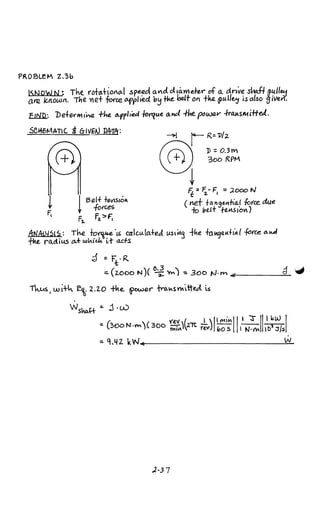 PROBLEM 2.36
KNOWN: The rotational speed and diameter of a drive shaft pulley
are known. The net force applied by the belt on the pulley is also given.
FIND: Determine the applied torque and the power transmitted.
SCHEMATIC & GIVEN DATA:
R = D/2
D = 0.3 m
300 RPM
+
+
Belt tension
forces
F₂ > F₁
F₁
F₂
Fₜ = F₂ - F₁ = 2000 N
(net tangential force due
to belt tension)
ANALYSIS: The torque is calculated using the tangential force and
the radius at which it acts
𝒥 = Fₜ·R
= (2000 N)(0.3/2 m) = 300 N·m 𝒥
Thus, with Eq. 2.20 the power transmitted is
Ẇshaft = 𝒥·ω
= (300 N·m)(300 rev/min)(2π 1/rev)|1 min/60 s||1 J/1 N·m||1 kW/10³ J/s|
= 9.42 kW Ẇ
2-37